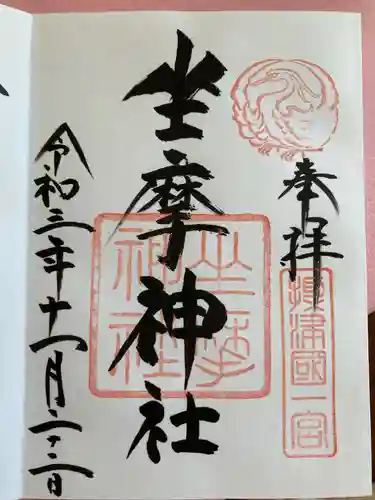 奉拝
攝津國一宮
坐摩神社
坐摩
神社
令和三年十一月二十二日